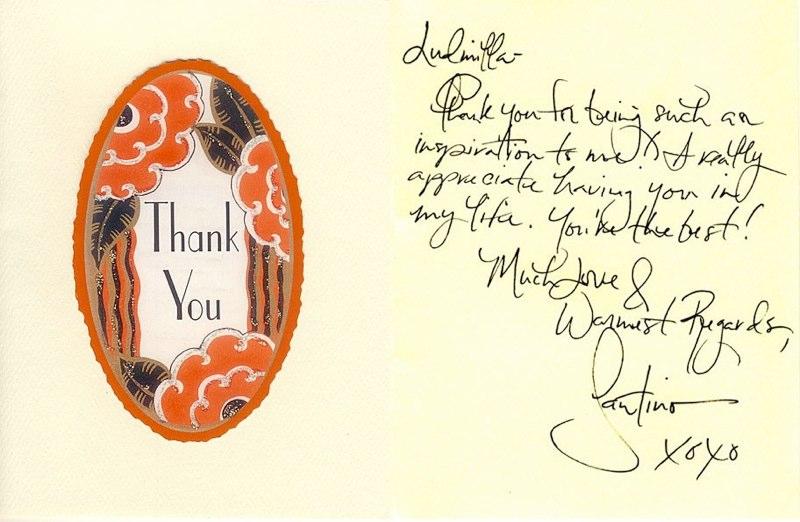 Thank
You
Ludmilla-
Thank you for being such an
inspiration to me! I really
appreciate having you in
my life. You're the best!
Much Love &
Warmest Regards,
Santino
xoxo